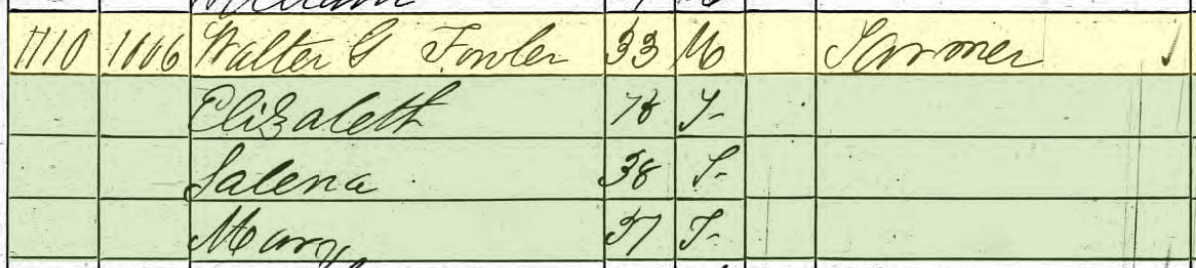 William
1110 1006 Walter G Fowler 33 M Farmer
Elizabeth 78 F
Salena 38 F
Mary 37 F